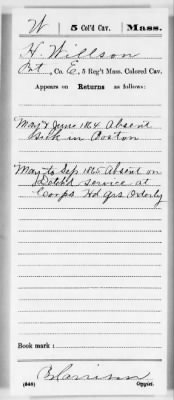 W | 5 Col'd Cav. | Mass.
H. Willson
Pvt, Co. E, 5 Reg't Mass. Colored Cav.
Appears on Returns as follows:
May & June 1864 Absent
Sick in Boston
May to Sep 1865 Absent on
Detchd service at
Corps Hd qrs Orderly
Book mark:
(546)
Copyist.